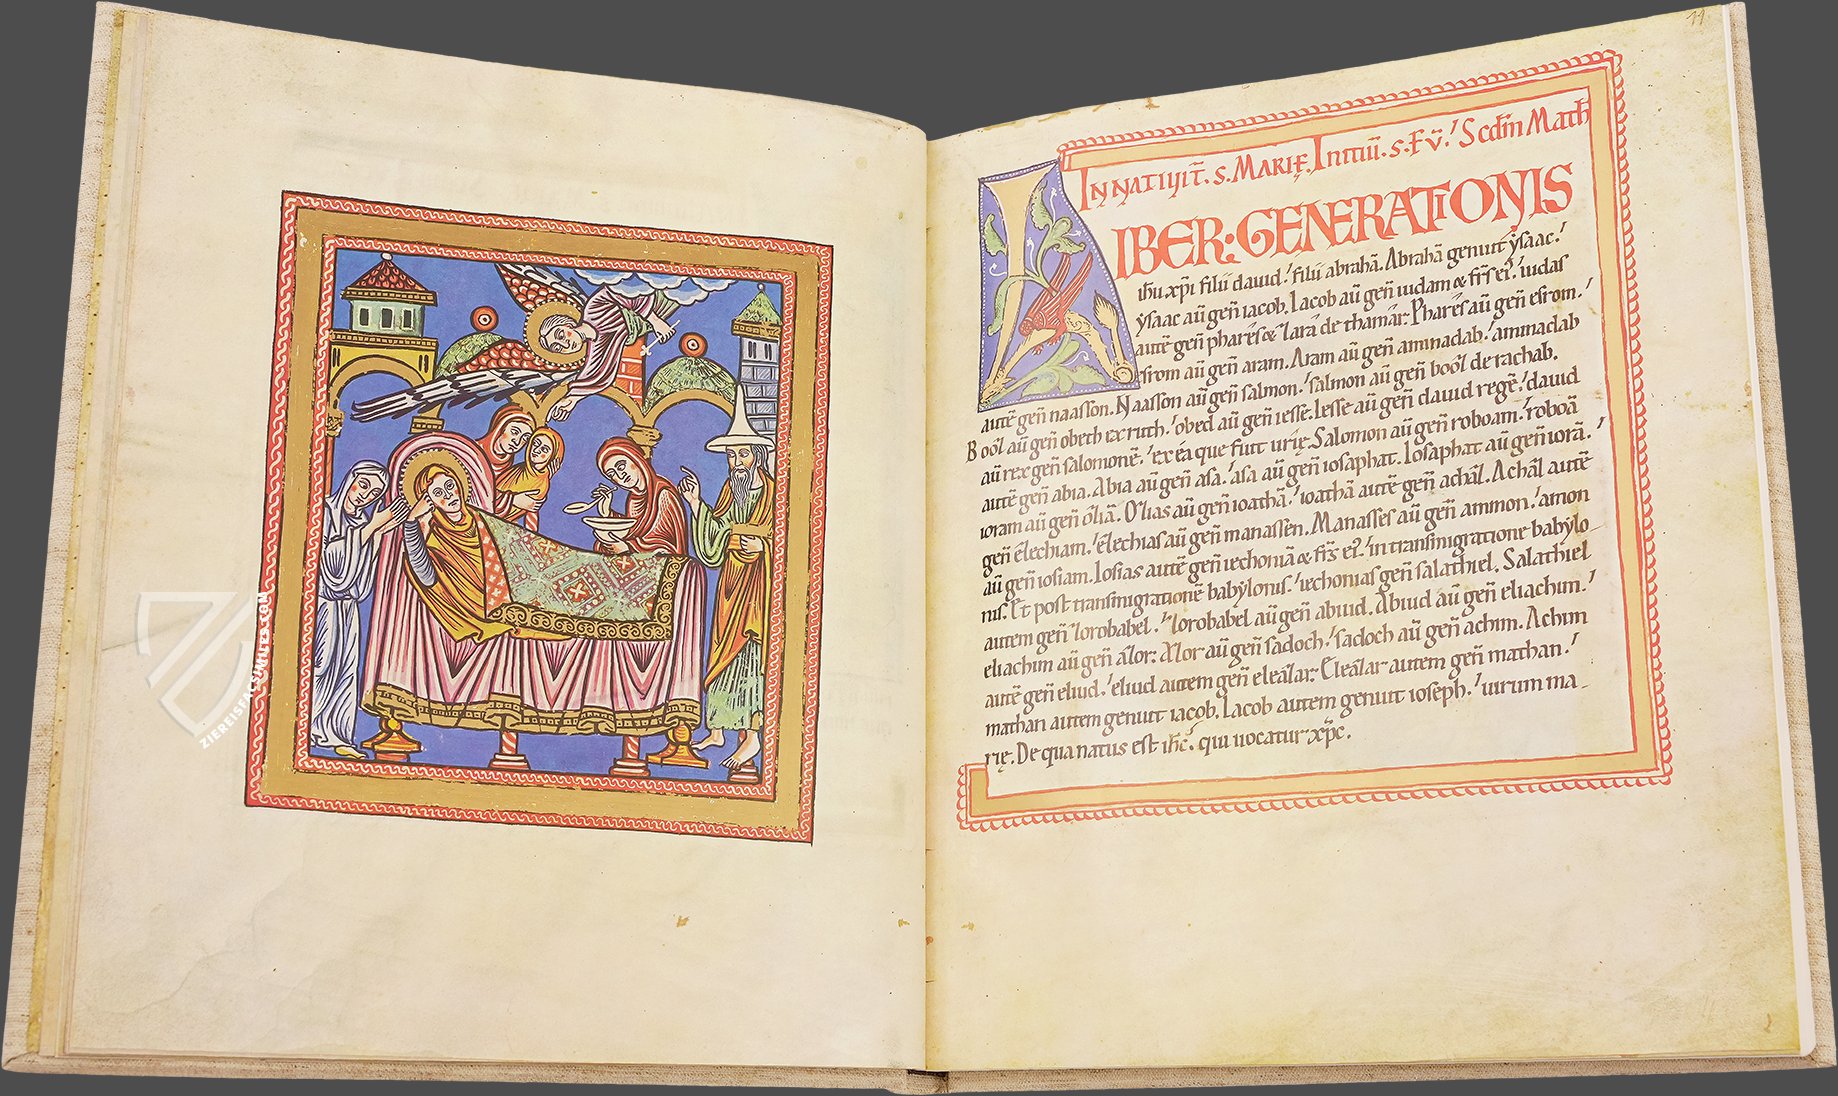 ZIEREISFACSIMILES.COM
11
IN NATIVIT̄. S. MARIĘ. INITIŪ. S. EV̄. Scd̄m Math̄
LIBER: GENERATIONIS
ih̄u xp̄i filii dauid. filii abrahā. Abrahā genuit ẏsaac.
ẏsaac aū gen̄ iacob. Iacob aū gen̄ iudam & fr̄s ei᷒. iudas
autē gen̄ phares & zara de thamar. Phares aū gen̄ esrom.
esrom aū gen̄ aram. Aram aū gen̄ aminadab. aminadab
autē gen̄ naasson. Naasson aū gen̄ salmon. salmon aū gen̄ booz de rachab.
Booz aū gen̄ obeth ex ruth. obed aū gen̄ iesse. Iesse aū gen̄ dauid regē. dauid
aū rex gen̄ salomonē. ex ea que fuit urię. Salomon aū gen̄ roboam. roboā
autē gen̄ abia. Abia aū gen̄ asa. asa aū gen̄ iosaphat. Iosaphat aū gen̄ iorā.
ioram aū gen̄ oziā. Ozias aū gen̄ ioathā. ioathā autē gen̄ achaz. Achaz autē
gen̄ ezechiam. ezechias aū gen̄ manassen. Manasses aū gen̄ ammon. amon
aū gen̄ iosiam. Iosias autē gen̄ iechoniā & fr̄s ei᷒. in transmigratione babẏlo
nis. Et post transmigrationē babẏlonis. iechonias gen̄ salathiel. Salathiel
autem gen̄ zorobabel. zorobabel aū gen̄ abiud. Abiud aū gen̄ eliachim.
eliachim aū gen̄ azor. Azor aū gen̄ sadoch. sadoch aū gen̄ achim. Achim
autē gen̄ eliud. eliud autem gen̄ eleazar. Eleazar autem gen̄ mathan.
mathan autem genuit iacob. Iacob autem genuit ioseph. uirum ma-
rię. De qua natus est ih̄c. qui uocatur xp̄c.